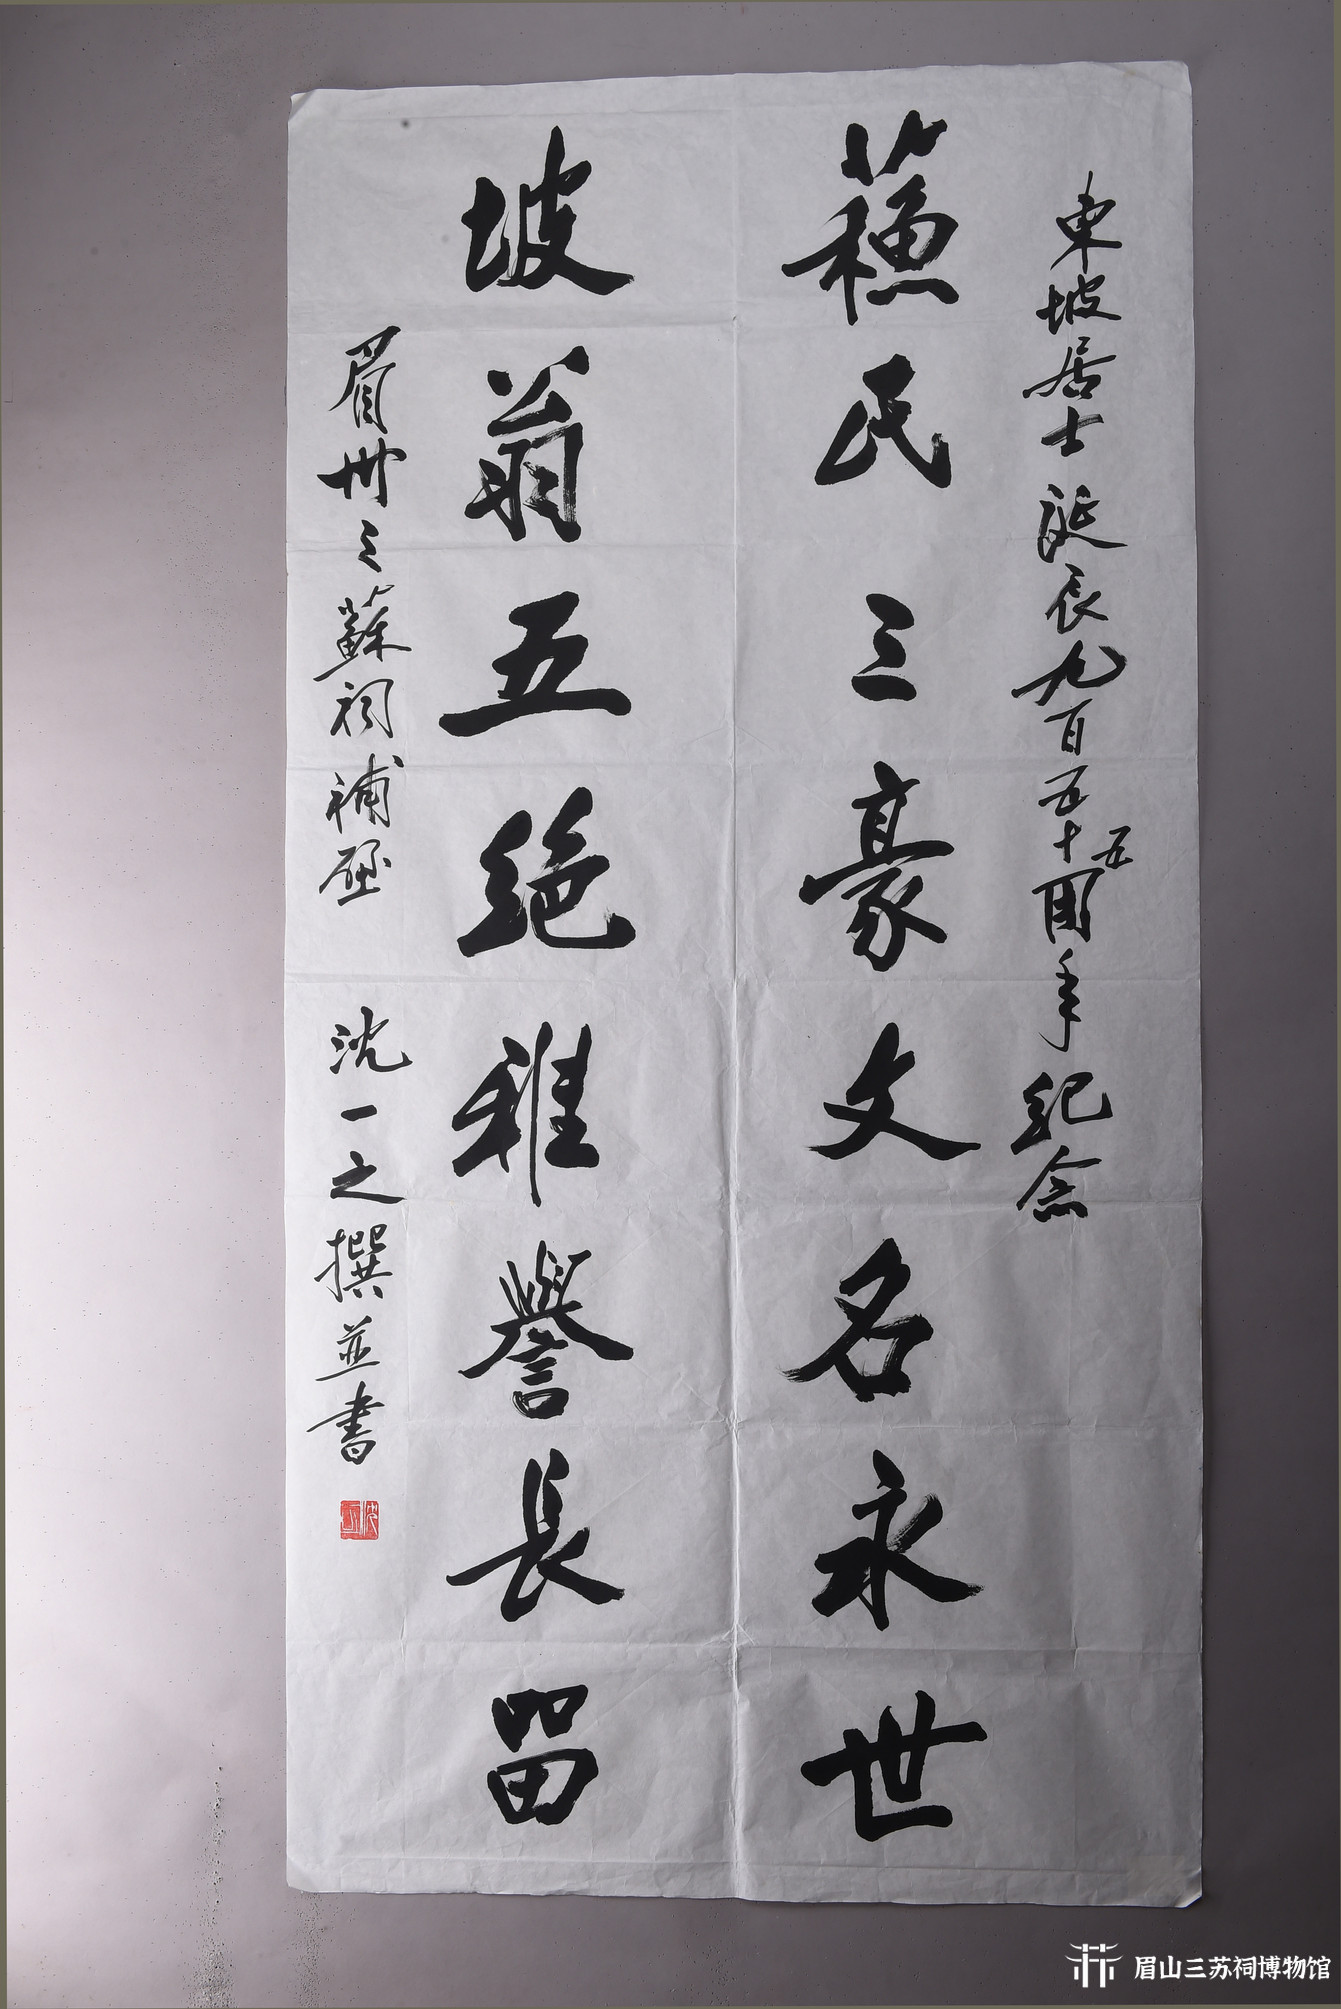 東坡居士誕辰九百五十五周年紀念
蘓氏三豪文名永世
坡翁五絕雅譽長留
眉州三蘇祠補壁 沈一之撰並書
眉山三苏祠博物馆